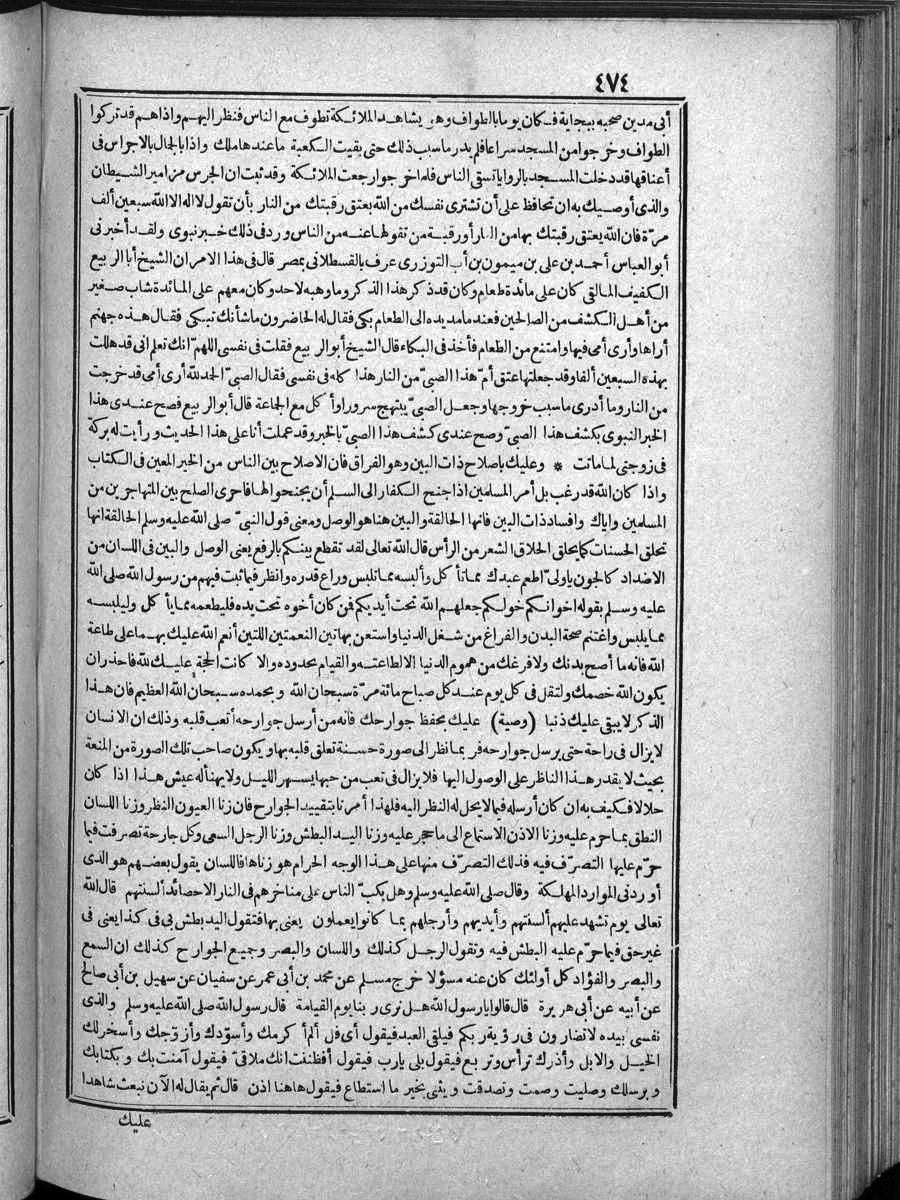 ٤٧٤
أبى مدين صحبه ببجاية فكان يوما بالطواف وهو يشاهد الملائكة تطوف مع الناس فنظر اليهم واذاهم قد تركوا
الطواف وخرجوا من المسجد سراعا فلم يدر ما سبب ذلك حتى بقيت الكعبة ما عندها ملك واذا بالجمال بالاجراس فى
أعناقها قد دخلت المسجد بالروايا تسقى الناس فلما خرجوا رجعت الملائكة وقد ثبت ان الجرس مزامير الشيطان
والذى أوصيك به ان تحافظ على أن تشترى نفسك من الله بعتق رقبتك من النار بأن تقول لا اله الا الله سبعين ألف
مرّة فان الله يعتق رقبتك بها من النار أو رقبة من تقولها عنه من الناس ورد فى ذلك خبر نبوى ولقد أخبرنى
أبو العباس أحمد بن على بن ميمون بن أب التوزرى عرف بالقسطلانى بمصر قال فى هذا الامر ان الشيخ أبا الربيع
الكفيف المالقى كان على مائدة طعام وكان قد ذكر هذا الذكر وما وهبه لاحد وكان معهم على المائدة شاب صغير
من أهل الكشف من الصالحين فعندما مد يده الى الطعام بكى فقال له الحاضرون ما شأنك تبكى فقال هذه جهنم
أراها وأرى أمى فيها وامتنع من الطعام فأخذ فى البكاء قال الشيخ أبو الربيع فقلت فى نفسى اللهمّ انك تعلم انى قد هللت
بهذه السبعين ألفا وقد جعلتها عتق أمّ هذا الصبىّ من النار هذا كله فى نفسى فقال الصبىّ الحمد لله أرى أمى قد خرجت
من النار وما أدرى ما سبب خروجها وجعل الصبىّ يبتهج سرورا وأكل مع الجماعة قال أبو الربيع فصح عندى هذا
الخبر النبوى بكشف هذا الصبىّ وصح عندى كشف هذا الصبىّ بالخبر وقد عملت أنا على هذا الحديث ورأيت له بركة
فى زوجتى لما ماتت * وعليك باصلاح ذات البين وهو الفراق فان الاصلاح بين الناس من الخبر المعين فى الكتاب
واذا كان الله قد رغب بل أمر المسلمين اذا جنح الكفار الى السلم أن يجنحوا لها فاحرى الصلح بين المتهاجرين من
المسلمين واياك وافساد ذات البين فانها الحالقة والبين هنا هو الوصل ومعنى قول النبىّ صلى الله عليه وسلم الحالقة انها
تحلق الحسنات كما يحلق الحلاق الشعر من الرأس قال الله تعالى لقد تقطع بينكم بالرفع يعنى الوصل والبين فى اللسان من
الاضداد كالجون ياولىّ اطعم عبدك مما تأكل وألبسه مما تلبس وراع قدره وانظر فيما ثبت فيهم من رسول الله صلى الله
عليه وسلم بقوله اخوانكم خولكم جعلهم الله تحت أيديكم فمن كان أخوه تحت يده فليطعمه مما يأكل وليلبسه
مما يلبس واغتنم صحة البدن والفراغ من شغل الدنيا واستعن بهاتين النعمتين اللتين أنعم الله عليك بهما على طاعة
الله فانه ما أصح بدنك ولا فرغك من هموم الدنيا الا لطاعته والقيام بحدوده والا كانت الحجة عليك لله فاحذر ان
يكون الله خصمك ولتقل فى كل يوم عند كل صباح مائة مرّة سبحان الله وبحمده سبحان الله العظيم فان هذا
الذكر لا يبقى عليك ذنبا (وصية) عليك بحفظ جوارحك فانه من أرسل جوارحه أتعب قلبه وذلك ان الانسان
لا يزال فى راحة حتى يرسل جوارحه فربما نظر الى صورة حسنة تعلق قلبه بها ويكون صاحب تلك الصورة من المنعة
بحيث لا يقدر هذا الناظر على الوصول اليها فلا يزال فى تعب من حبها يسهر الليل ولا يهنأ له عيش هذا اذا كان
حلالا فكيف به ان كان أرسله فيما لا يحل له النظر اليه فلهذا أمرنا بتقييد الجوارح فان زنا العيون النظر وزنا اللسان
النطق بما حرم عليه وزنا الاذن الاستماع الى ما حجر عليه وزنا اليد البطش وزنا الرجل السعى وكل جارحة تصرفت فيما
حرّم عليها التصرّف فيه فذلك التصرّف منها على هذا الوجه الحرام هو زناها فاللسان يقول بعضهم هو الذى
أوردنى الموارد المهلكة وقال صلى الله عليه وسلم وهل يكبّ الناس على مناخرهم فى النار الا حصائد ألسنتهم قال الله
تعالى يوم تشهد عليهم ألسنتهم وأيديهم وأرجلهم بما كانوا يعملون يعنى بها فتقول اليد بطش بى فى كذا يعنى فى
غير حق فيما حرّم عليه البطش فيه وتقول الرجل كذلك واللسان والبصر وجميع الجوارح كذلك ان السمع
والبصر والفؤاد كل أولئك كان عنه مسؤلا خرج مسلم عن محمد بن أبى عمر عن سفيان عن سهيل بن أبى صالح
عن أبيه عن أبى هريرة قال قالوا يا رسول الله هل نرى ربنا يوم القيامة قال رسول الله صلى الله عليه وسلم والذى
نفسى بيده لا تضارون فى رؤية ربكم فيلقى العبد فيقول أى فل ألم أكرمك وأسوّدك وأزوّجك وأسخر لك
الخيل والابل وأذرك ترأس وتربع فيقول بلى يارب فيقول أفظننت انك ملاقىّ فيقول آمنت بك وبكتابك
وبرسلك وصليت وصمت وتصدقت ويثنى بخير ما استطاع فيقول هاهنا اذن قال ثم يقال له الآن نبعث شاهدا
عليك